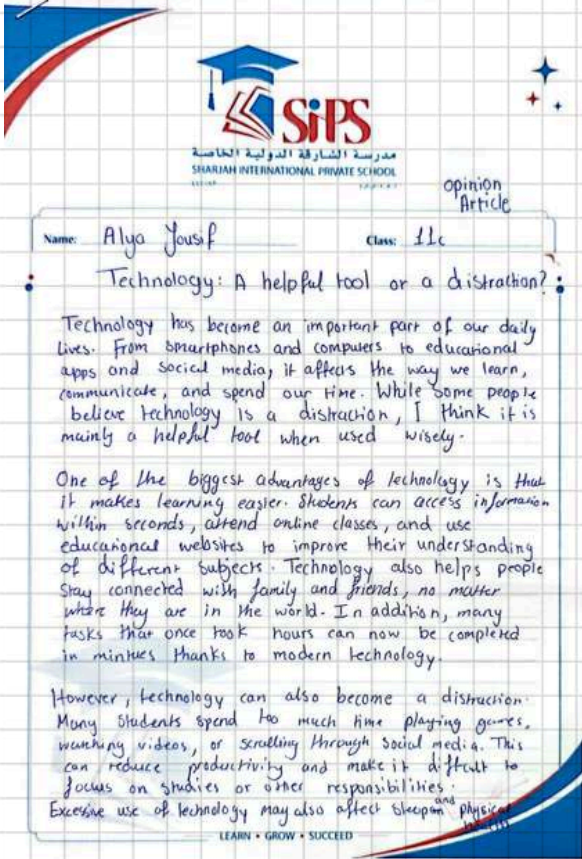 SiPS
مدرسة الشارقة الدولية الخاصة
SHARJAH INTERNATIONAL PRIVATE SCHOOL
opinion
Article
Name: Alya Yousif Class: 11c
Technology: A helpful tool or a distraction?
Technology has become an important part of our daily
lives. From smartphones and computers to educational
apps and social media, it affects the way we learn,
communicate, and spend our time. While some people
believe technology is a distraction, I think it is
mainly a helpful tool when used wisely.
One of the biggest advantages of technology is that
it makes learning easier. Students can access information
within seconds, attend online classes, and use
educational websites to improve their understanding
of different subjects. Technology also helps people
stay connected with family and friends, no matter
where they are in the world. In addition, many
tasks that once took hours can now be completed
in mintues thanks to modern technology.
However, technology can also become a distraction.
Many students spend too much time playing games,
watching videos, or scrolling through social media. This
can reduce productivity and make it difficult to
focus on studies or other responsibilities.
Excessive use of technology may also affect sleep and physical
health
LEARN • GROW • SUCCEED